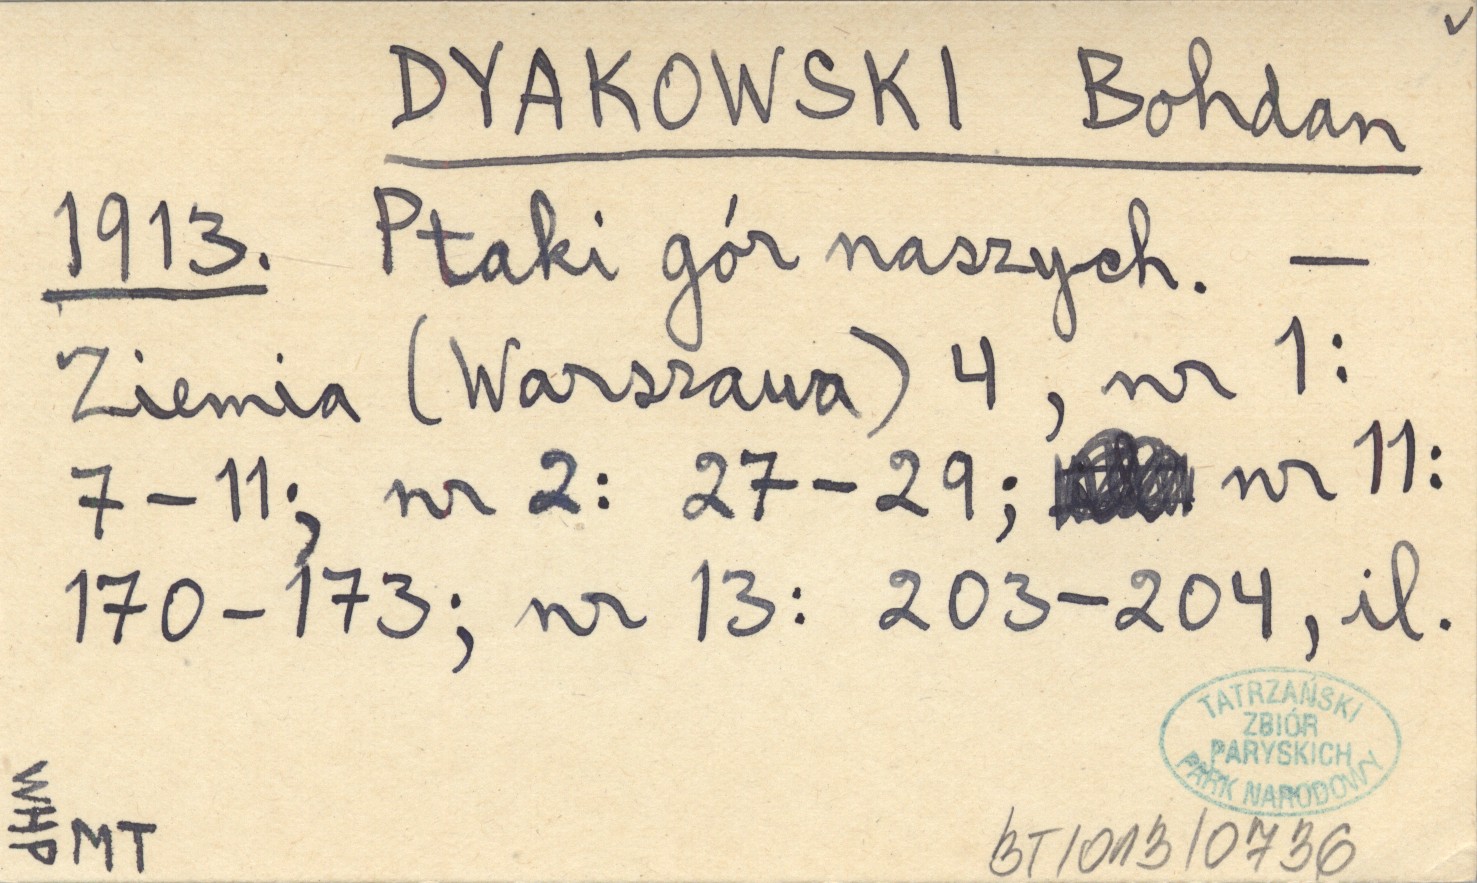 DYAKOWSKI Bohdan
1913. Ptaki gór naszych. —
Ziemia (Warszawa) 4, nr 1:
7-11; nr 2: 27-29; nr 11:
170-173; nr 13: 203-204, il.
TATRZAŃSKI
ZBIÓR
PARYSKICH
PARK NARODOWY
WHP
MT
BT/013/0736